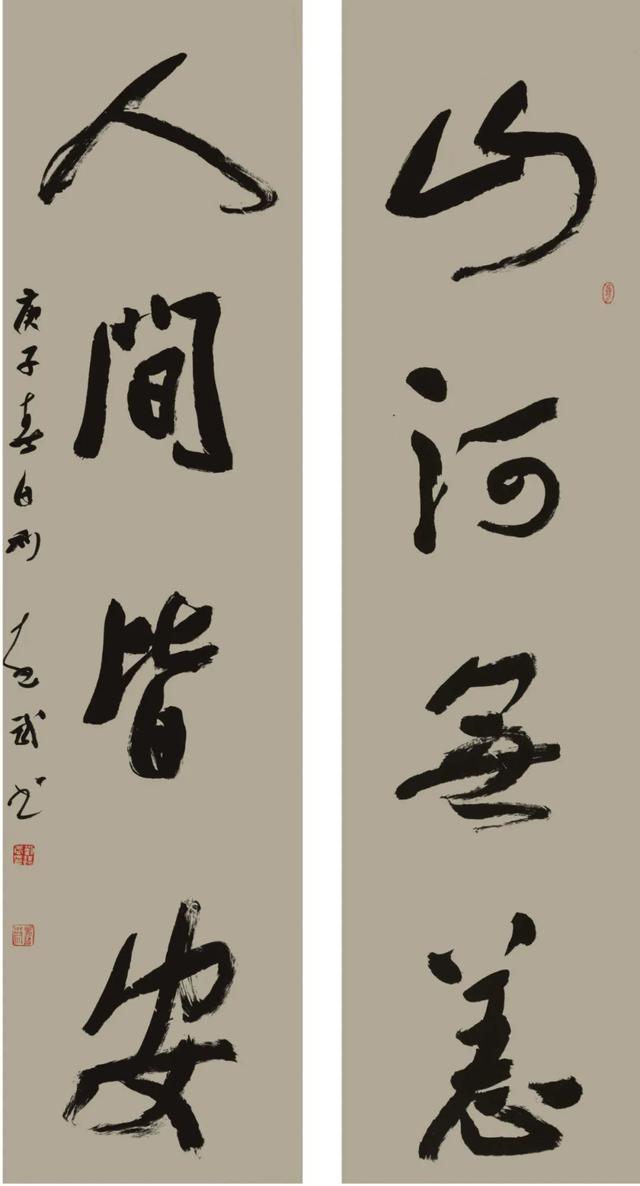 山河無恙
人間皆安
庚子春月 志武书